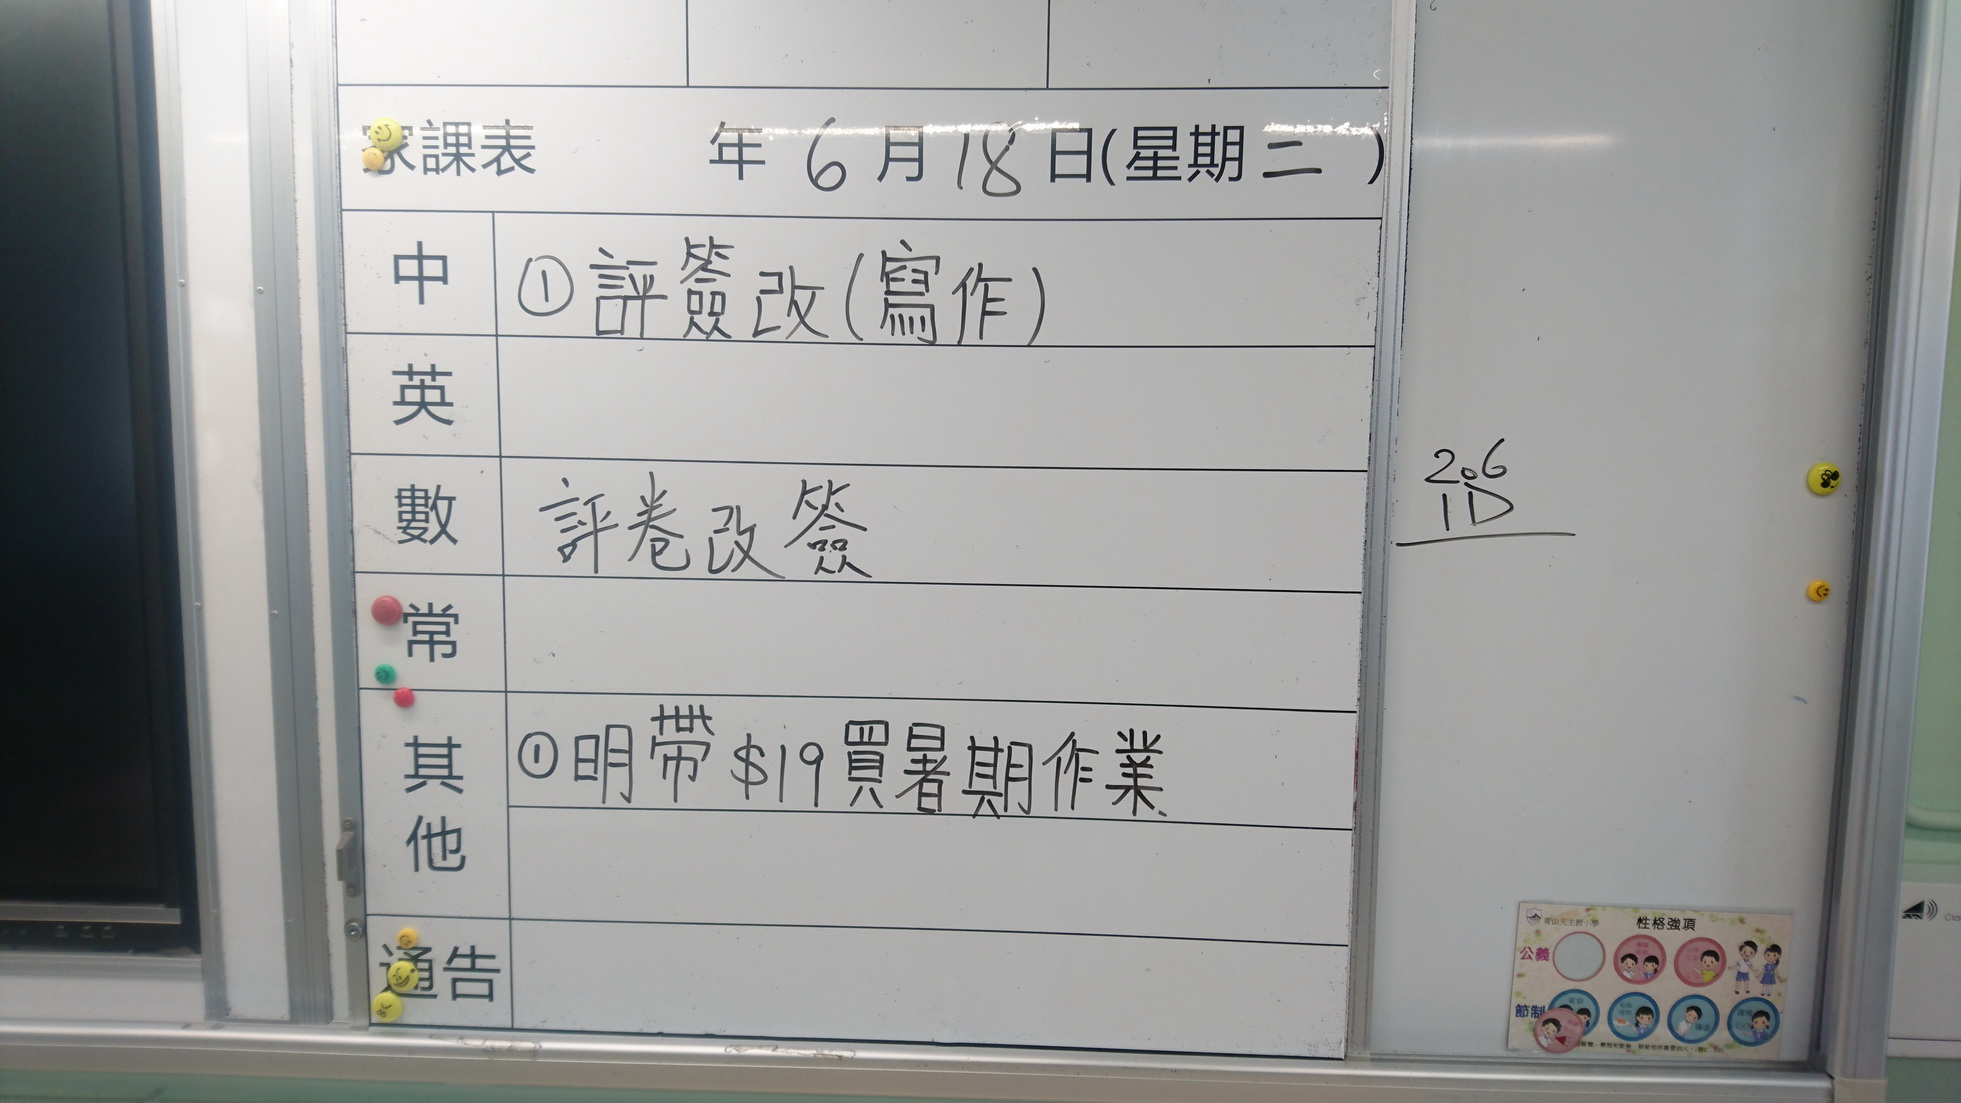 家課表 年 6 月 18 日(星期 二 )
中 ① 評簽改(寫作)
英
數 評卷改簽
常
其他 ① 明帶 $19 買暑期作業
通告
2.6
1D
性格強項
公義
節制